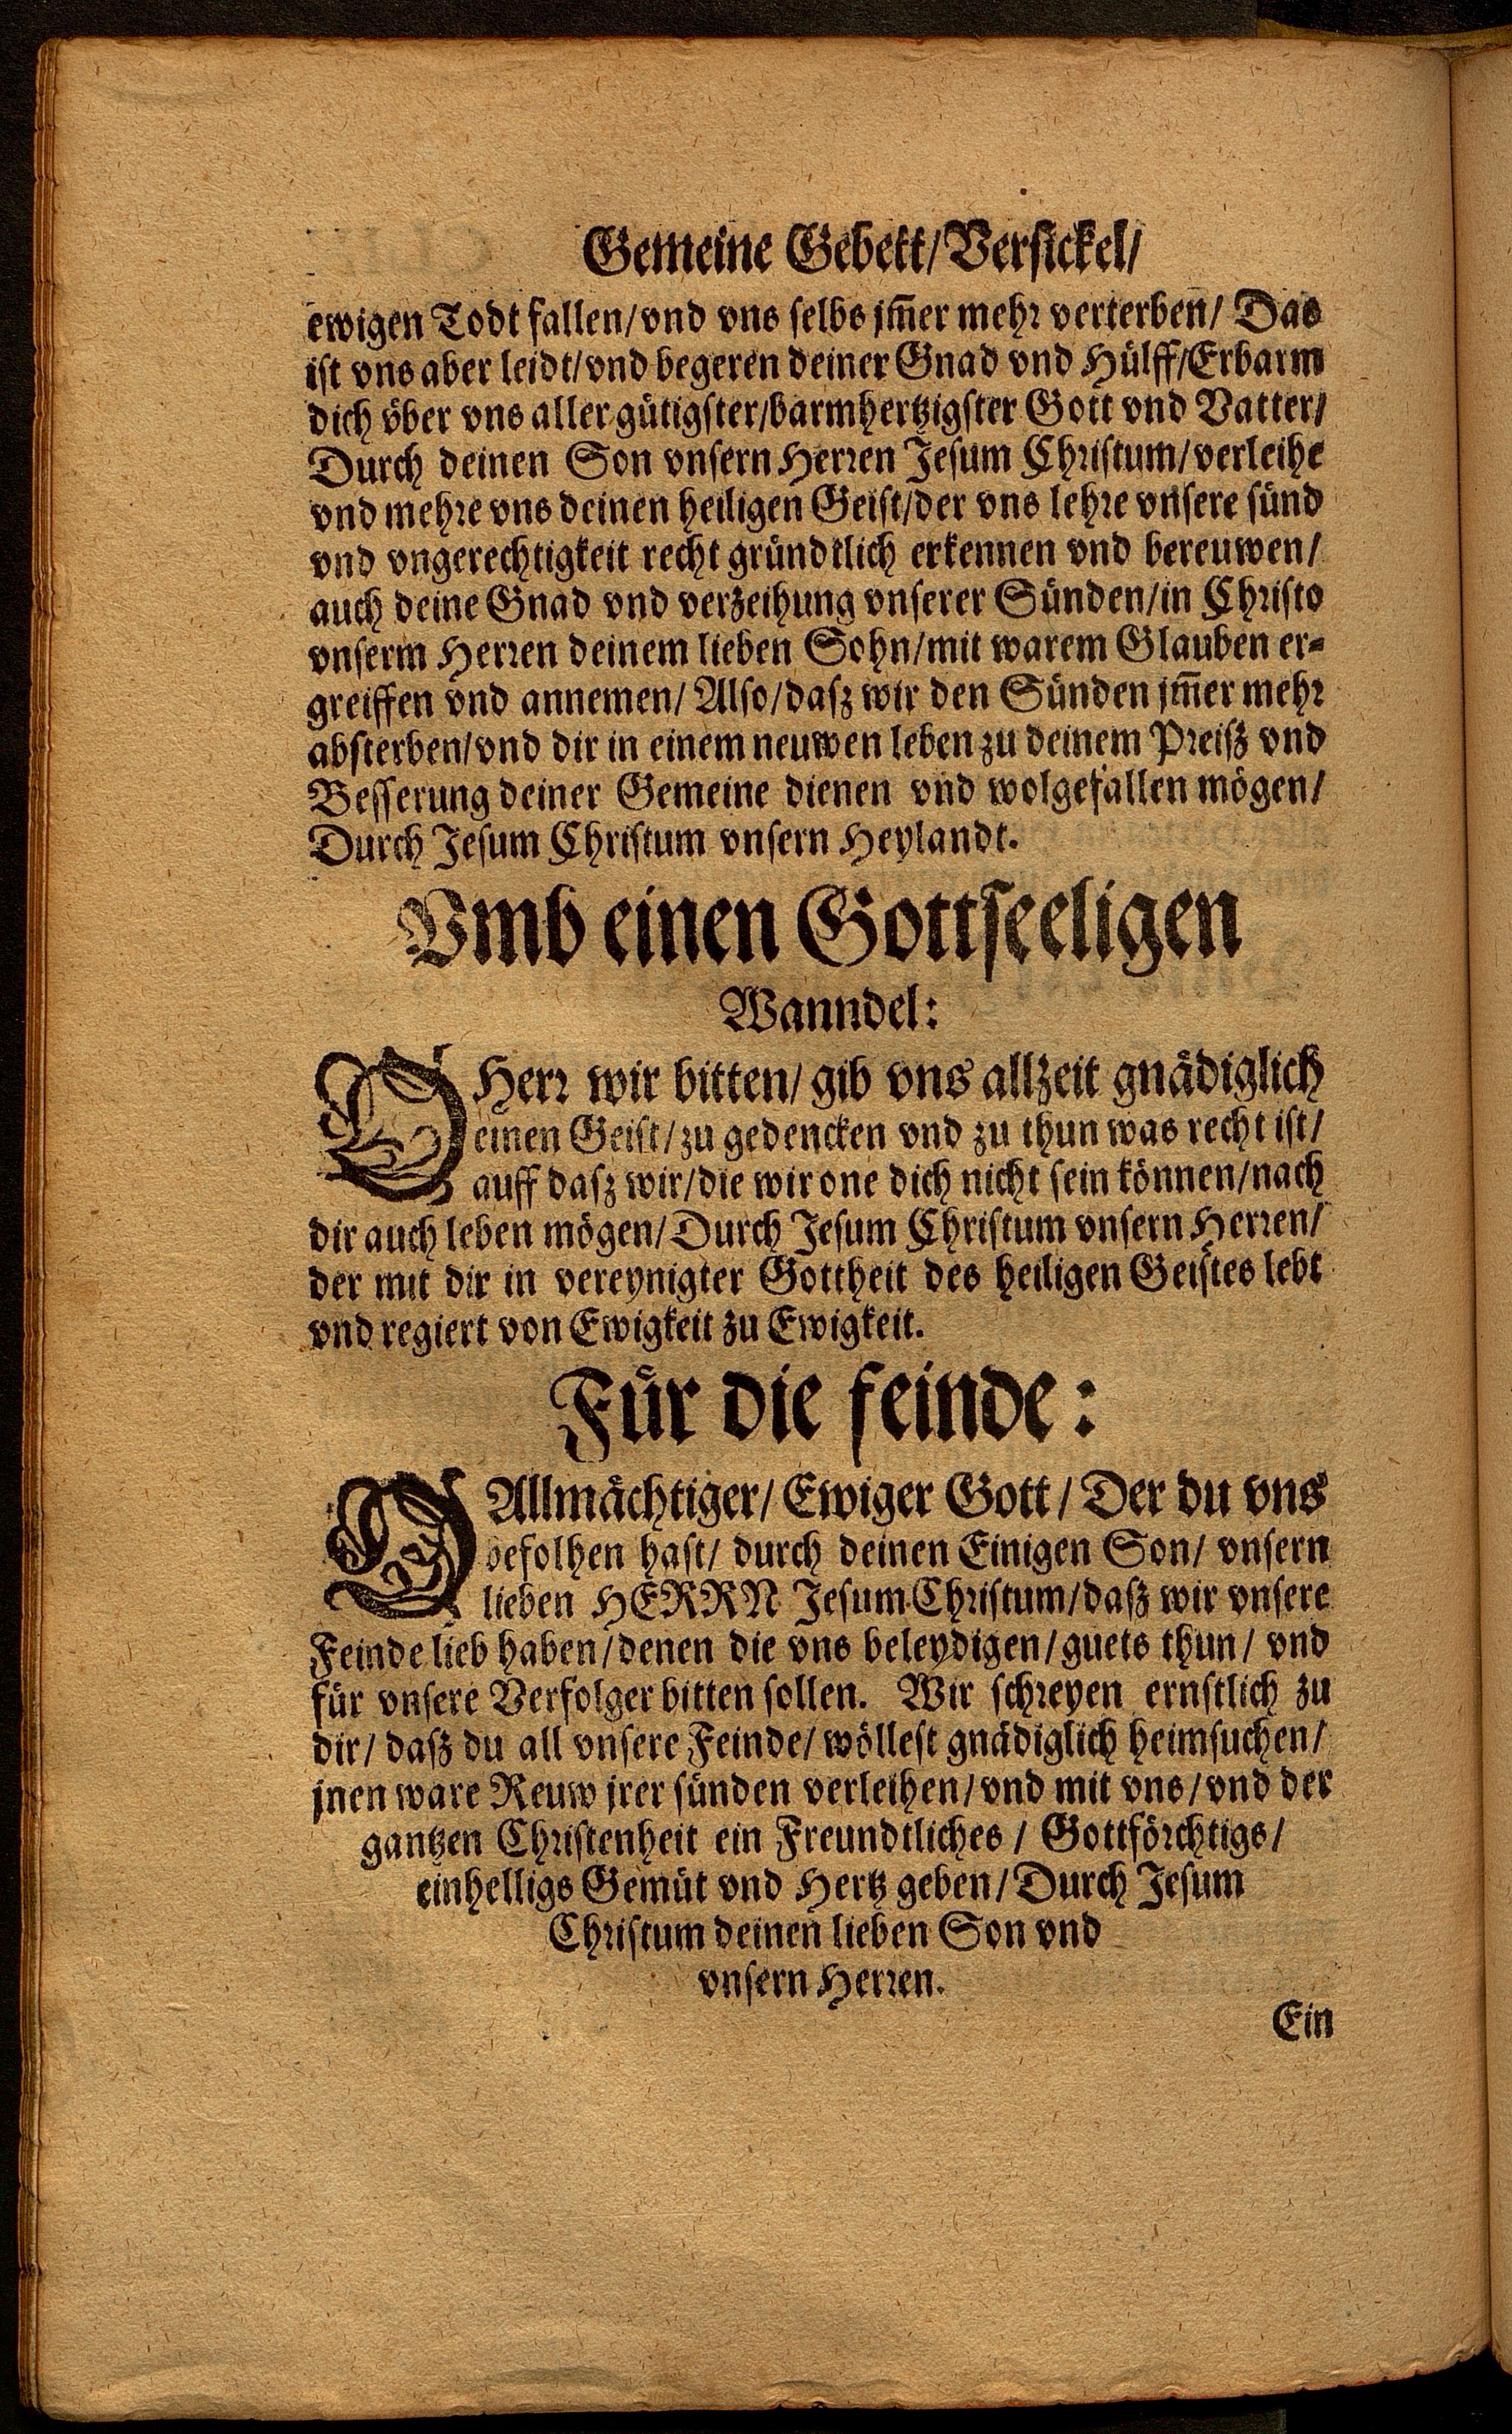 Gemeine Gebett/Versickel/
ewigen Todt fallen/vnd vns selbs jm̃er mehr verterben/ Das
ist vns aber leidt/vnd begeren deiner Gnad vnd Hülff/Erbarm
dich vber vns aller gütigster/barmhertzigster Gott vnd Vatter/
Durch deinen Son vnsern Herren Jesum Christum/verleihe
vnd mehre vns deinen heiligen Geist/der vns lehre vnsere sünd
vnd vngerechtigkeit recht gründtlich erkennen vnd bereuwen/
auch deine Gnad vnd verzeihung vnserer Sünden/in Christo
vnserm Herren deinem lieben Sohn/mit warem Glauben er-
greiffen vnd annemen/ Also/dasz wir den Sünden jm̃er mehr
absterben/vnd dir in einem neuwen leben zu deinem Preisz vnd
Besserung deiner Gemeine dienen vnd wolgefallen mögen/
Durch Jesum Christum vnsern Heylandt.
Vmb einen Gottseeligen
Wanndel:
O Herr wir bitten/ gib vns allzeit gnädiglich
einen Geist/zu gedencken vnd zu thun was recht ist/
auff dasz wir/die wir one dich nicht sein können/nach
dir auch leben mögen/Durch Jesum Christum vnsern Herren/
der mit dir in vereynigter Gottheit des heiligen Geistes lebt
vnd regiert von Ewigkeit zu Ewigkeit.
Für die feinde:
O Allmächtiger/ Ewiger Gott/ Der du vns
befolhen hast/ durch deinen Einigen Son/ vnsern
lieben HERRN Jesum Christum/dasz wir vnsere
Feinde lieb haben/denen die vns beleydigen/guets thun/ vnd
für vnsere Verfolger bitten sollen. Wir schreyen ernstlich zu
dir/ dasz du all vnsere Feinde/ wöllest gnädiglich heimsuchen/
jnen ware Reuw jrer sünden verleihen/vnd mit vns/vnd der
gantzen Christenheit ein Freundtliches/ Gottförchtigs/
einhelligs Gemüt vnd Hertz geben/Durch Jesum
Christum deinen lieben Son vnd
vnsern Herren.
Ein